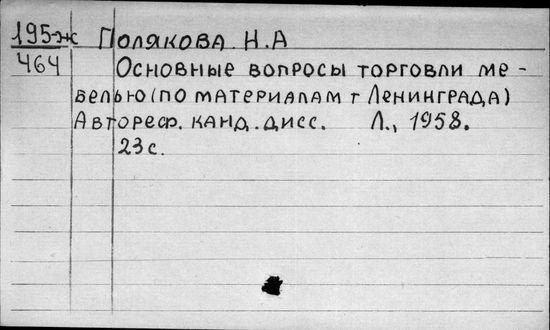 195-ж Полякова Н.А
464 Основные вопросы торговли ме-
белью (по материалам г Ленинграда)
Автореф. канд. дисс. Л., 1958.
23 с.